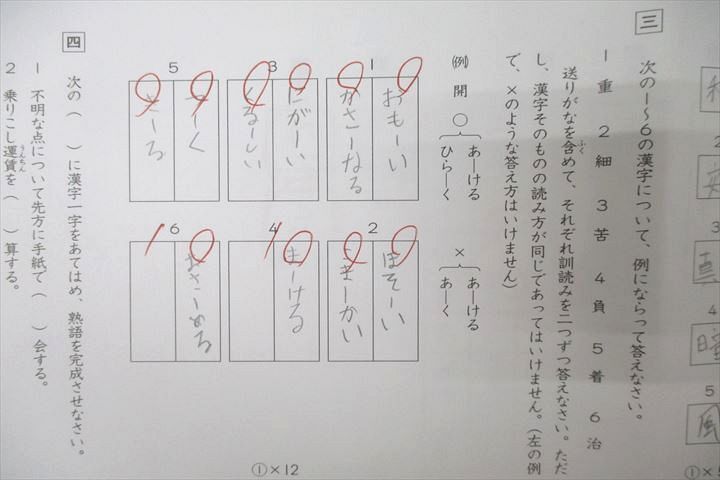 三
次の1〜6の漢字について、例にならって答えなさい。
1 重　2 細　3 苦　4 負　5 着　6 治
送りがなを含めて、それぞれ訓読みを二つずつ答えなさい。ただ
ふく
し、漢字そのものの読み方が同じであってはいけません。（左の例
で、×のような答え方はいけません）
(例) 開 ○ あ―ける ひら―く × あ―ける あ―く
1
おも―い
かさ―なる
2
ほそ―い
こま―かい
3
にが―い
くる―しい
4
ま―ける
5
つ―く
き―る
6
おさ―める
①×12
四
次の（　）に漢字一字をあてはめ、熟語を完成させなさい。
1 不明な点について先方に手紙で（　）会する。
2 乗りこし運賃を（　）算する。
うんちん
3
真
4
5
風